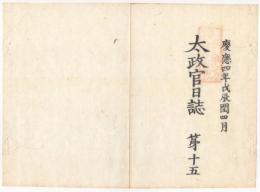 慶應四年戊辰閏四月
太政官日誌 第十五